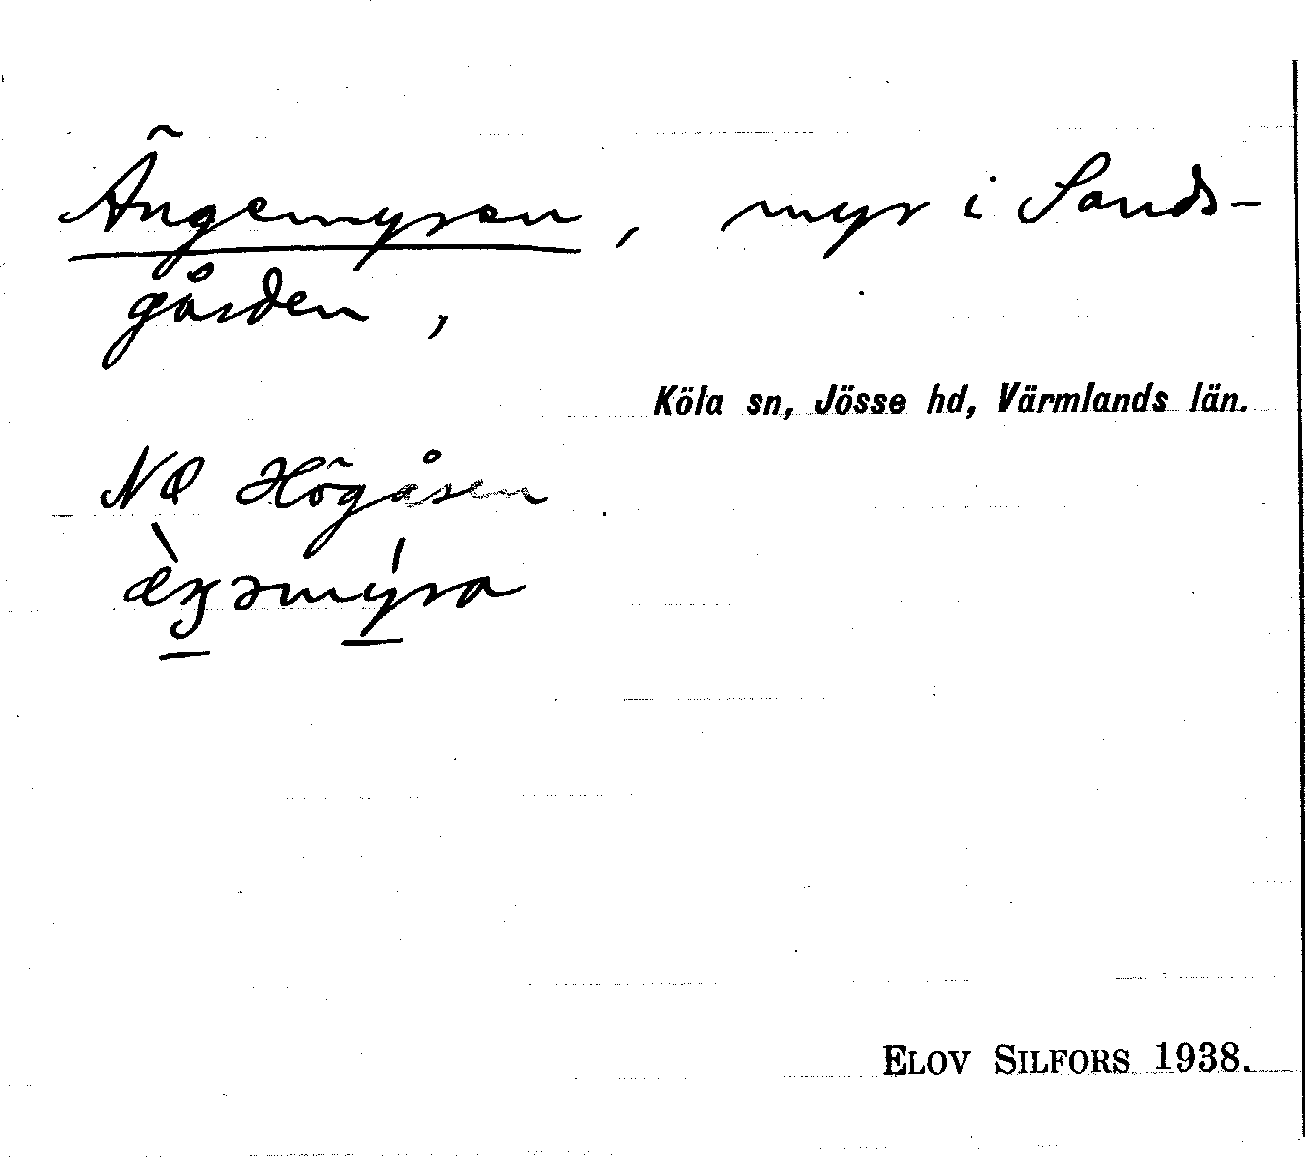 Ängemyren, myr i Sands-
gården,
Köla sn, Jösse hd, Värmlands län.
NO Högåsen
ELOV SILFORS 1938.